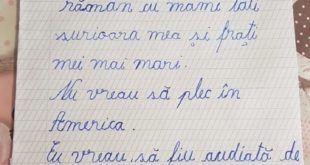 rămân cu mami tati
surioara mea și frați
mei mai mari.
Nu vreau să plec în
America.
Eu vreau să fiu acudiată de